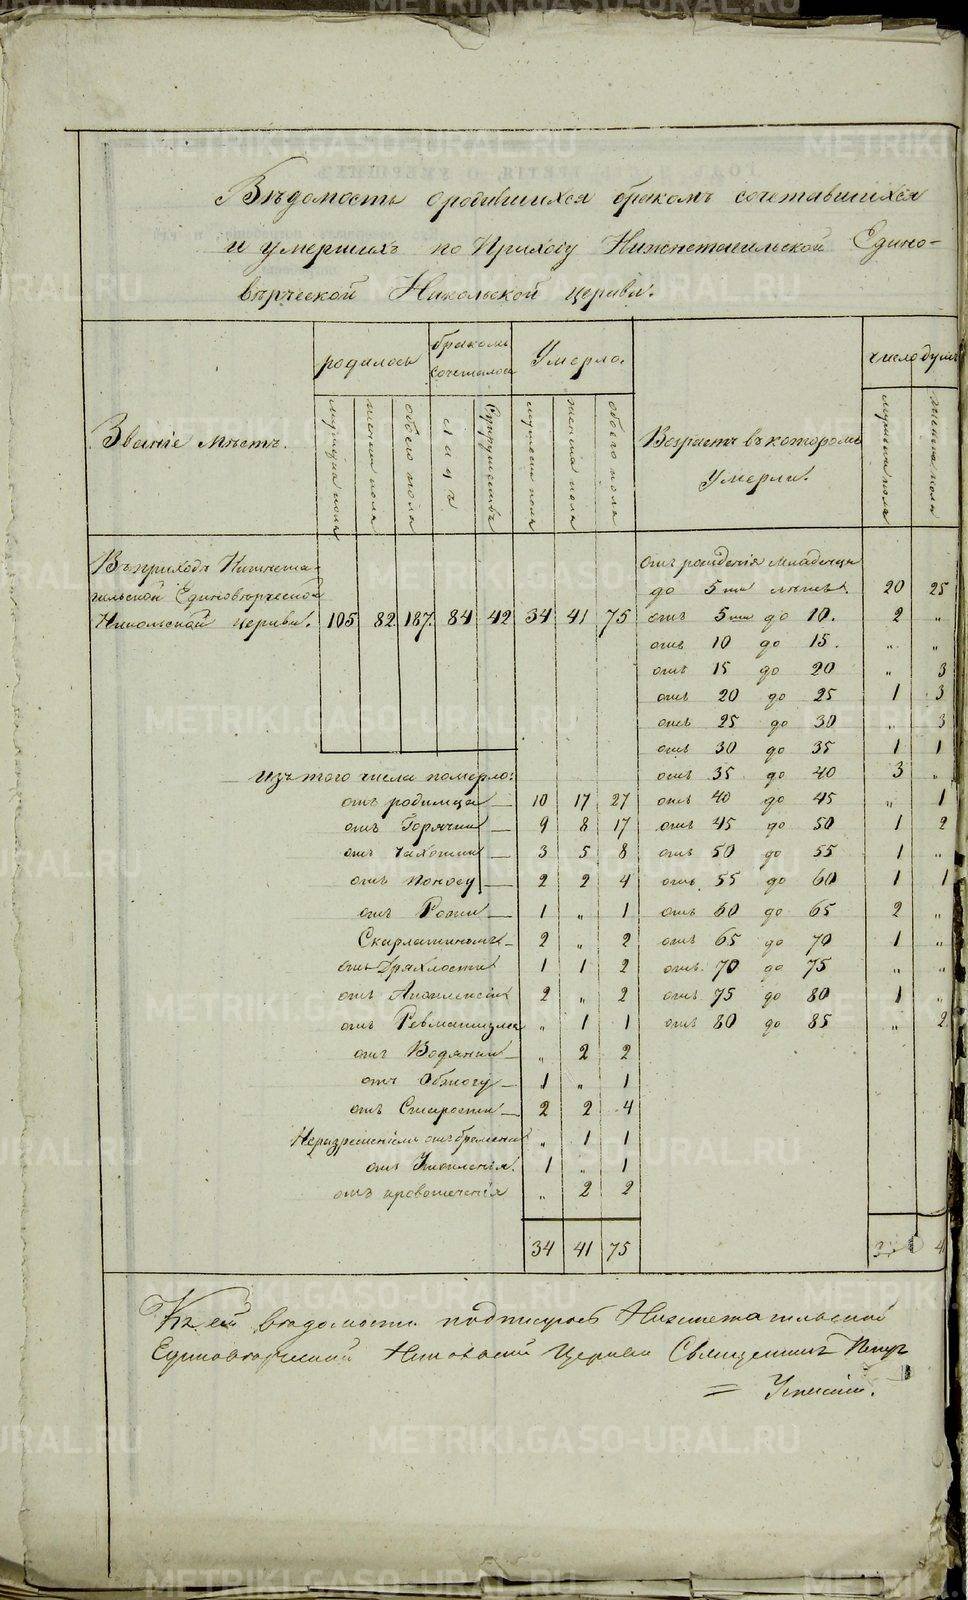 METRIKI.GASO-URAL.RU
Вѣдомость о родившихся бракомъ сочетавшихся
и умершихъ по Приходу Нижнетагильской Едино-
вѣрческой Никольской церкви.
Званіе мѣстъ.
родилось
бракомъ сочеталось
Умерло.
Возрастъ въ которомъ умерли.
число душъ
мужеска пола
женска пола
обоего пола
лицъ
супружествъ
мужеска пола
женска пола
обоего пола
мужеска пола
женска пола
Въ приходѣ Нижнета-
гильской Единовѣрческой
Никольской церкви. 105 82 187. 84 42 34 41 75
отъ рожденія младенцы
до 5ти лѣтъ. 20 25
отъ 5ти до 10. 2 „
отъ 10 до 15. „ „
отъ 15 до 20 „ 3
отъ 20 до 25 1 3
отъ 25 до 30 „ 3
отъ 30 до 35 1 1
отъ 35 до 40 3 „
отъ 40 до 45 „ 1
отъ 45 до 50 1 2
отъ 50 до 55 1 „
отъ 55 до 60 1 1
отъ 60 до 65 2 „
отъ 65 до 70 1 „
отъ 70 до 75 „ „
отъ 75 до 80 1 „
отъ 80 до 85 „ 2
Изъ того числа померло:
отъ родимца — 10 17 27
отъ Горячки — 9 8 17
отъ Чахотки — 3 5 8
отъ поносу — 2 2 4
отъ Рожи — 1 „ 1
Скарлатиномъ — 2 „ 2
отъ Дряхлости 1 1 2
отъ Апоплексіи 2 „ 2
отъ Ревматизма „ 1 1
отъ Водянки — „ 2 2
отъ Обжогу — 1 „ 1
отъ Старости — 2 2 4
Неразрешеніемъ отъ бремени „ 1 1
отъ Утопленія. 1 „ 1
отъ кровотеченія „ 2 2
34 41 75
Къ сей вѣдомости подписуюсь Нижнетагильской
Единовѣрческой Никольской Церкви Священникъ Петръ